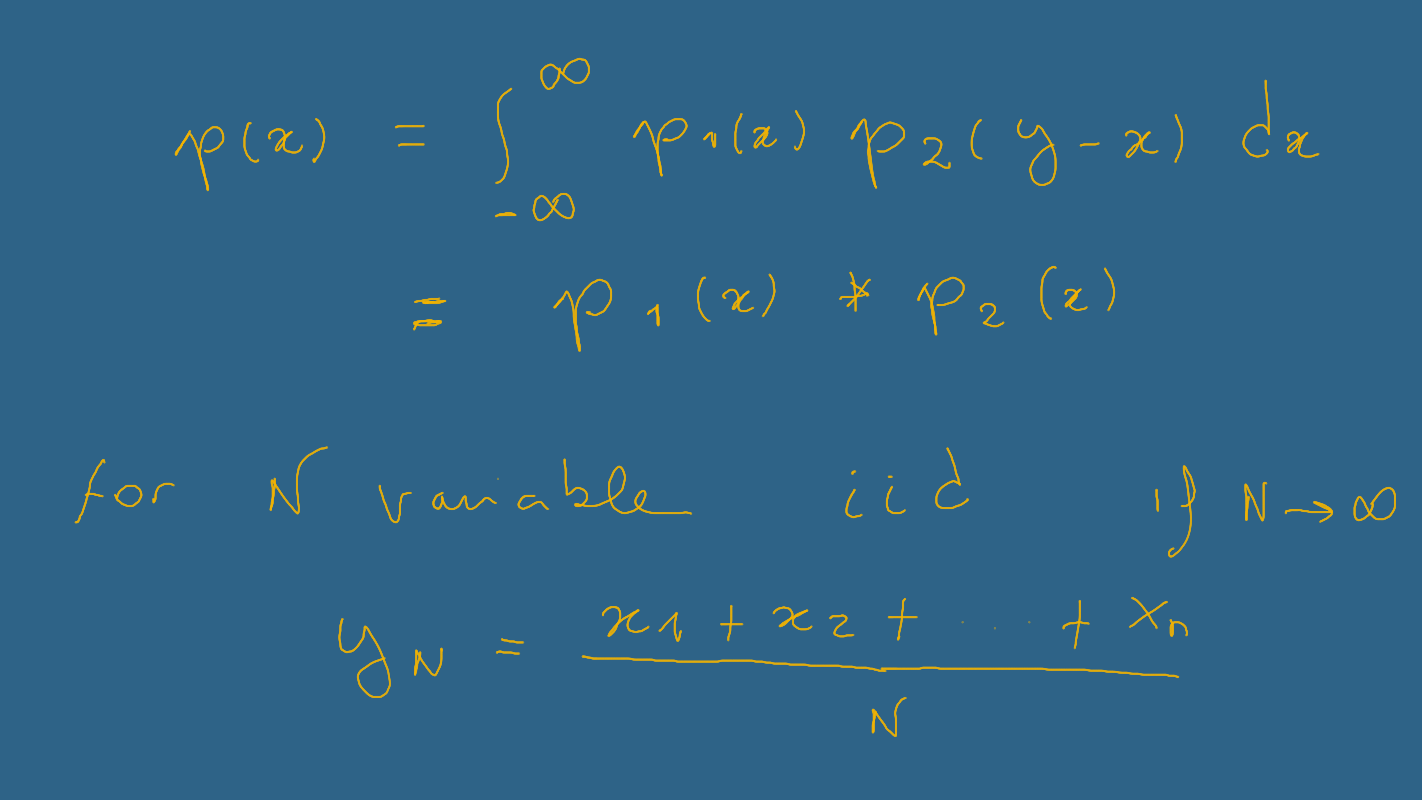 p(x) = ∫_{-∞}^{∞} p₁(x) p₂(y-x) dx
= p₁(x) * p₂(x)
for N variable iid if N → ∞
y_N = (x₁ + x₂ + .... + x_n) / N